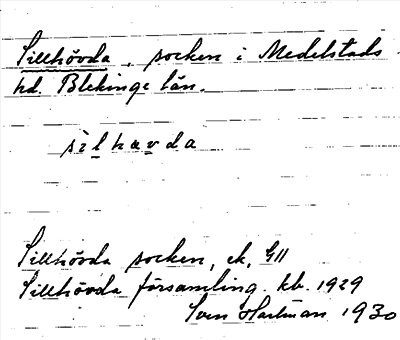 Sillhövda, socken i Medelstads
hd. Blekinge län.
sìlhævda
Sillhövda socken, ek, GII
Sillhövda församling. kb. 1929
Sven Hartman 1930